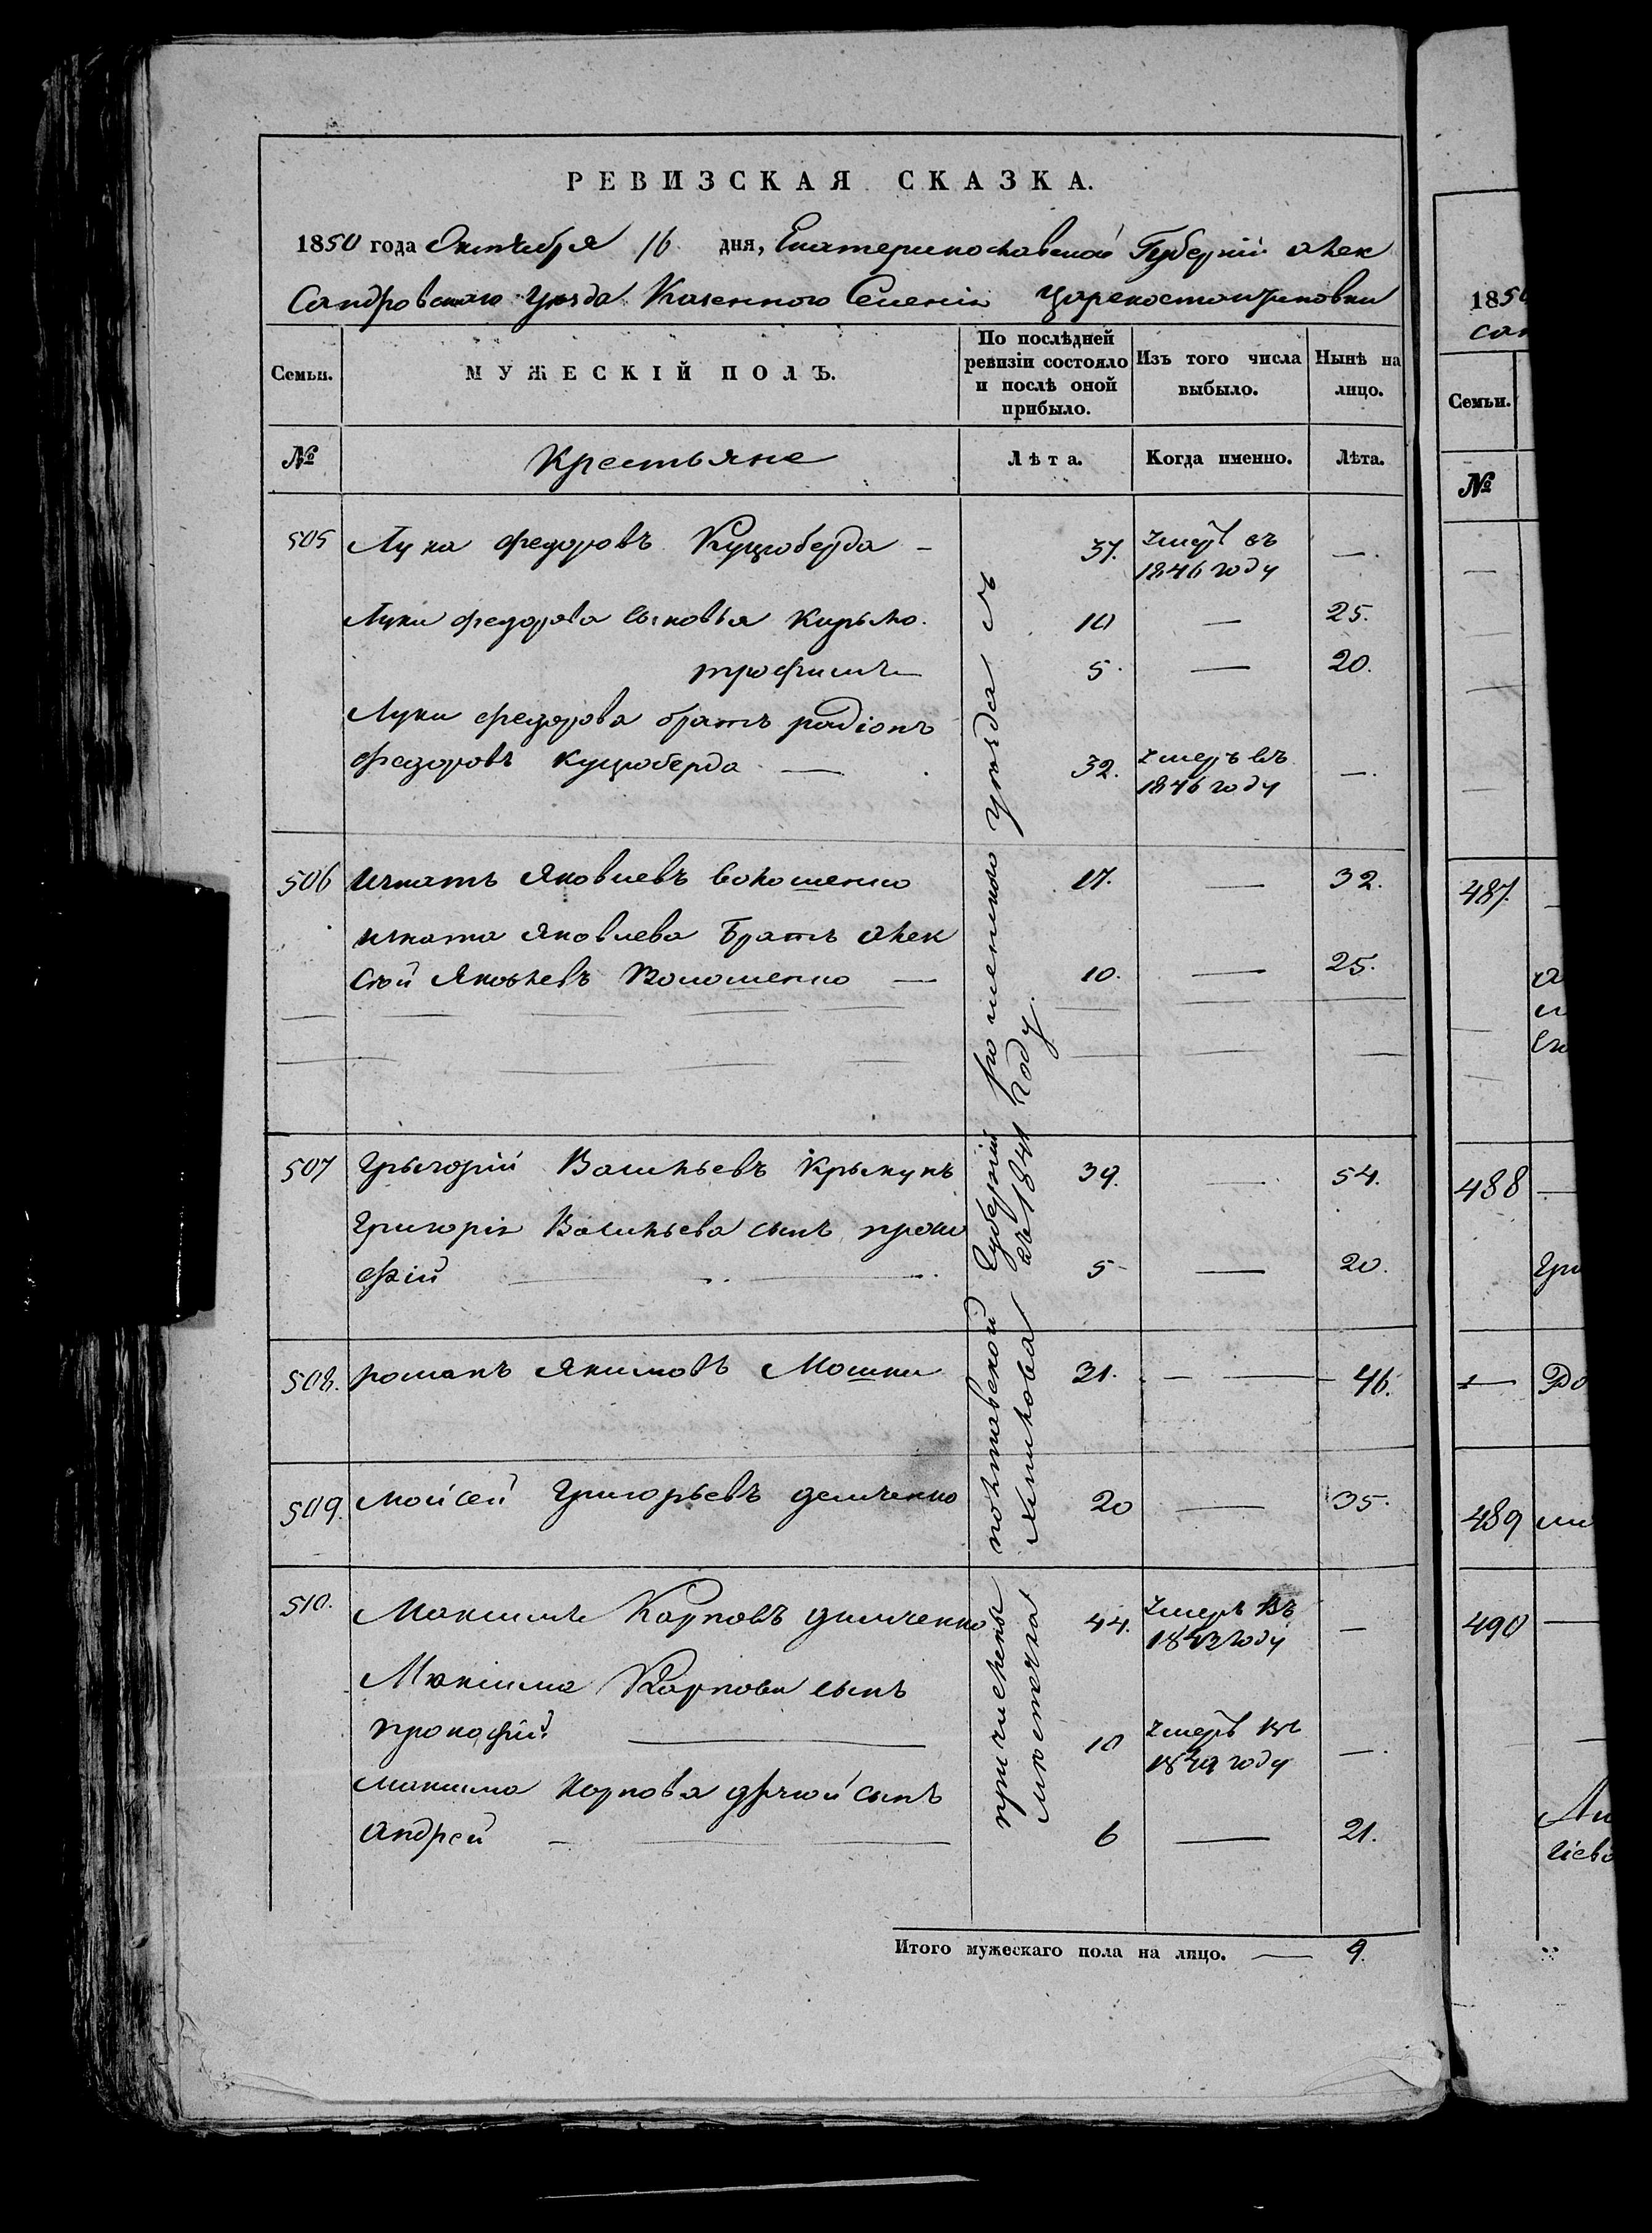 РЕВИЗСКАЯ СКАЗКА.
1850 года Октября 16 дня, Екатеринославской Губерніи Алек
Сандровскаго уѣзда Казенного Селенія Царекостантиновки
Семьи. МУЖЕСКІЙ ПОЛЪ. По послѣдней ревизіи состояло и послѣ оной прибыло. Изъ того числа выбыло. Нынѣ на лицо.
№ Крестьяне Лѣта. Когда именно. Лѣта.
505 Лука Федоровъ Куцоберда – 37. умеръ въ 1846 году —.
Луки федорова сыновья Кирыло. 10 — 25.
трофимъ 5. — 20.
Луки федорова братъ радіонъ
федоровъ куцоберда — 32. умеръ въ 1846 году —.
506 игнатъ Яковлевъ волошенко 17. — 32.
игната Яковлева Братъ Алек
сѣй Яковлевъ Волошенко — 10. — 25.
507 Грыгорій Васильевъ Крыкунъ 39. — 54.
Григорія Васильева сынъ проко
фій 5 — 20.
508. романъ Якимовъ Мошки 31. — 46.
509. Моисей Григорьевъ демченко 20 — 35.
510. Максимъ Карповъ димченко 44. умеръ въ 1843 году —
Максима Карпова сынъ
прокофій 10 умеръ въ 1849 году —.
максима карпова другой сынъ
Андрей 6 — 21.
причислены полтавской Губерніи роменского уѣзда съ
мѣстечка въ 1841 году.
Итого мужескаго пола на лицо. — 9.
1850
сан
Семьи.
№
487.
488
Гри
489
490